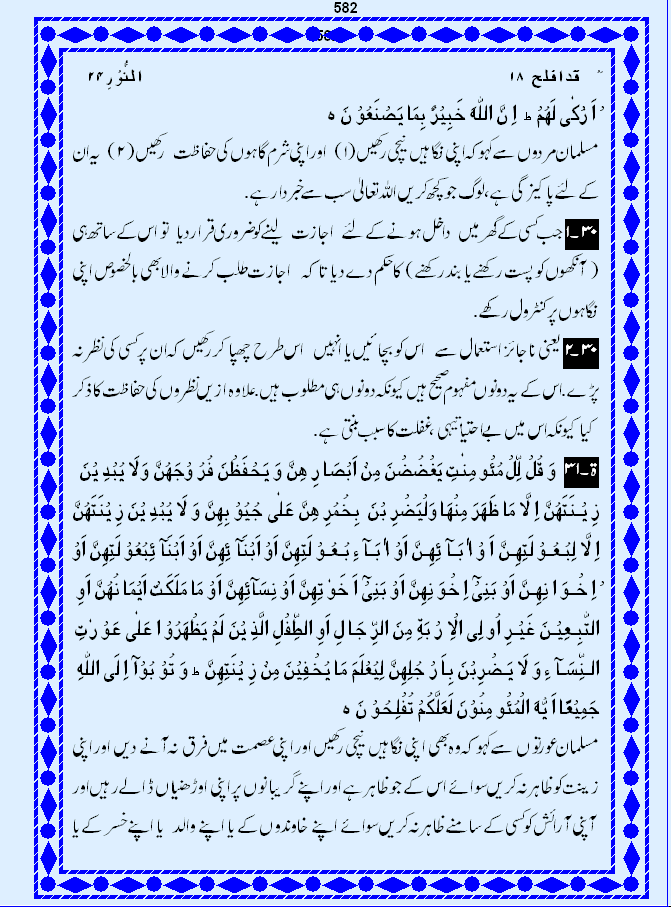 582
قد افلح ۱۸ النُّوْرِ ۲۴
اَزْكٰى لَهُمْ ط اِنَّ اللّٰهَ خَبِيْرٌ بِمَا يَصْنَعُوْنَ ہ
مسلمان مردوں سے کہو کہ اپنی نگاہیں نیچی رکھیں (۱) اور اپنی شرم گاہوں کی حفاظت رکھیں (۲) یہ ان
کے لئے پاکیزگی ہے، لوگ جو کچھ کریں اللہ تعالیٰ سب سے خبردار ہے۔
۳۰۔۱ جب کسی کے گھر میں داخل ہونے کے لئے اجازت لینے کو ضروری قرار دیا تو اس کے ساتھ ہی
(آنکھوں کو پست رکھنے یا بند رکھنے) کا حکم دے دیا تاکہ اجازت طلب کرنے والا بھی بالخصوص اپنی
نگاہوں پر کنٹرول رکھے۔
۳۰۔۲ یعنی ناجائز استعمال سے اس کو بچائیں یا انہیں اس طرح چھپا کر رکھیں کہ ان پر کسی کی نظر نہ
پڑے۔ اس کے یہ دونوں مفہوم صحیح ہیں کیونکہ دونوں ہی مطلوب ہیں۔ علاوہ ازیں نظروں کی حفاظت کا ذکر
کیا کیونکہ اس میں بے احتیاتیہی، غفلت کا سبب بنتی ہے۔
ۃ۔۳۱ وَ قُلْ لِّلْمُئْوْمِنٰتِ يَغْضُضْنَ مِنْ اَبْصَارِهِنَّ وَ يَحْفَظْنَ فُرُوْجَهُنَّ وَلَا يُبْدِيْنَ
زِيْنَتَهُنَّ اِلَّا مَا ظَهَرَ مِنْهَا وَلْيَضْرِبْنَ بِخُمُرِهِنَّ عَلٰى جُيُوْبِهِنَّ وَ لَا يُبْدِيْنَ زِيْنَتَهُنَّ
اِلَّا لِبُعُوْلَتِهِنَّ اَوْ اٰبَآئِهِنَّ اَوْ اٰبَآءِ بُعُوْلَتِهِنَّ اَوْ اَبْنَآئِهِنَّ اَوْ اَبْنَآئِبُعُوْلَتِهِنَّ اَوْ
اِخْوَانِهِنَّ اَوْ بَنِيْٓ اِخْوَنِهِنَّ اَوْ بَنِيْٓ اَخَوٰتِهِنَّ اَوْ نِسَآئِهِنَّ اَوْ مَا مَلَكَتْ اَيْمَانُهُنَّ اَوِ
التّٰبِعِيْنَ غَيْرِ اُولِى الْاِرْبَةِ مِنَ الرِّجَالِ اَوِ الطِّفْلِ الَّذِيْنَ لَمْ يَظْهَرُوْا عَلٰى عَوْرٰتِ
النِّسَآءِ وَ لَا يَضْرِبْنَ بِاَرْجُلِهِنَّ لِيُعْلَمَ مَا يُخْفِيْنَ مِنْ زِيْنَتِهِنَّ ط وَ تُوْبُوْآ اِلَى اللّٰهِ
جَمِيْعًا اَيُّهَ الْمُئْوْمِنُوْنَ لَعَلَّكُمْ تُفْلِحُوْنَ ہ
مسلمان عورتوں سے کہو کہ وہ بھی اپنی نگاہیں نیچی رکھیں اور اپنی عصمت میں فرق نہ آنے دیں اور اپنی
زینت کو ظاہر نہ کریں سوائے اس کے جو ظاہر ہے اور اپنے گریبانوں پر اپنی اوڑھنیاں ڈالے رہیں اور
آپنی آرائش کو کسی کے سامنے ظاہر نہ کریں سوائے اپنے خاوندوں کے یا اپنے والد یا اپنے خسر کے یا